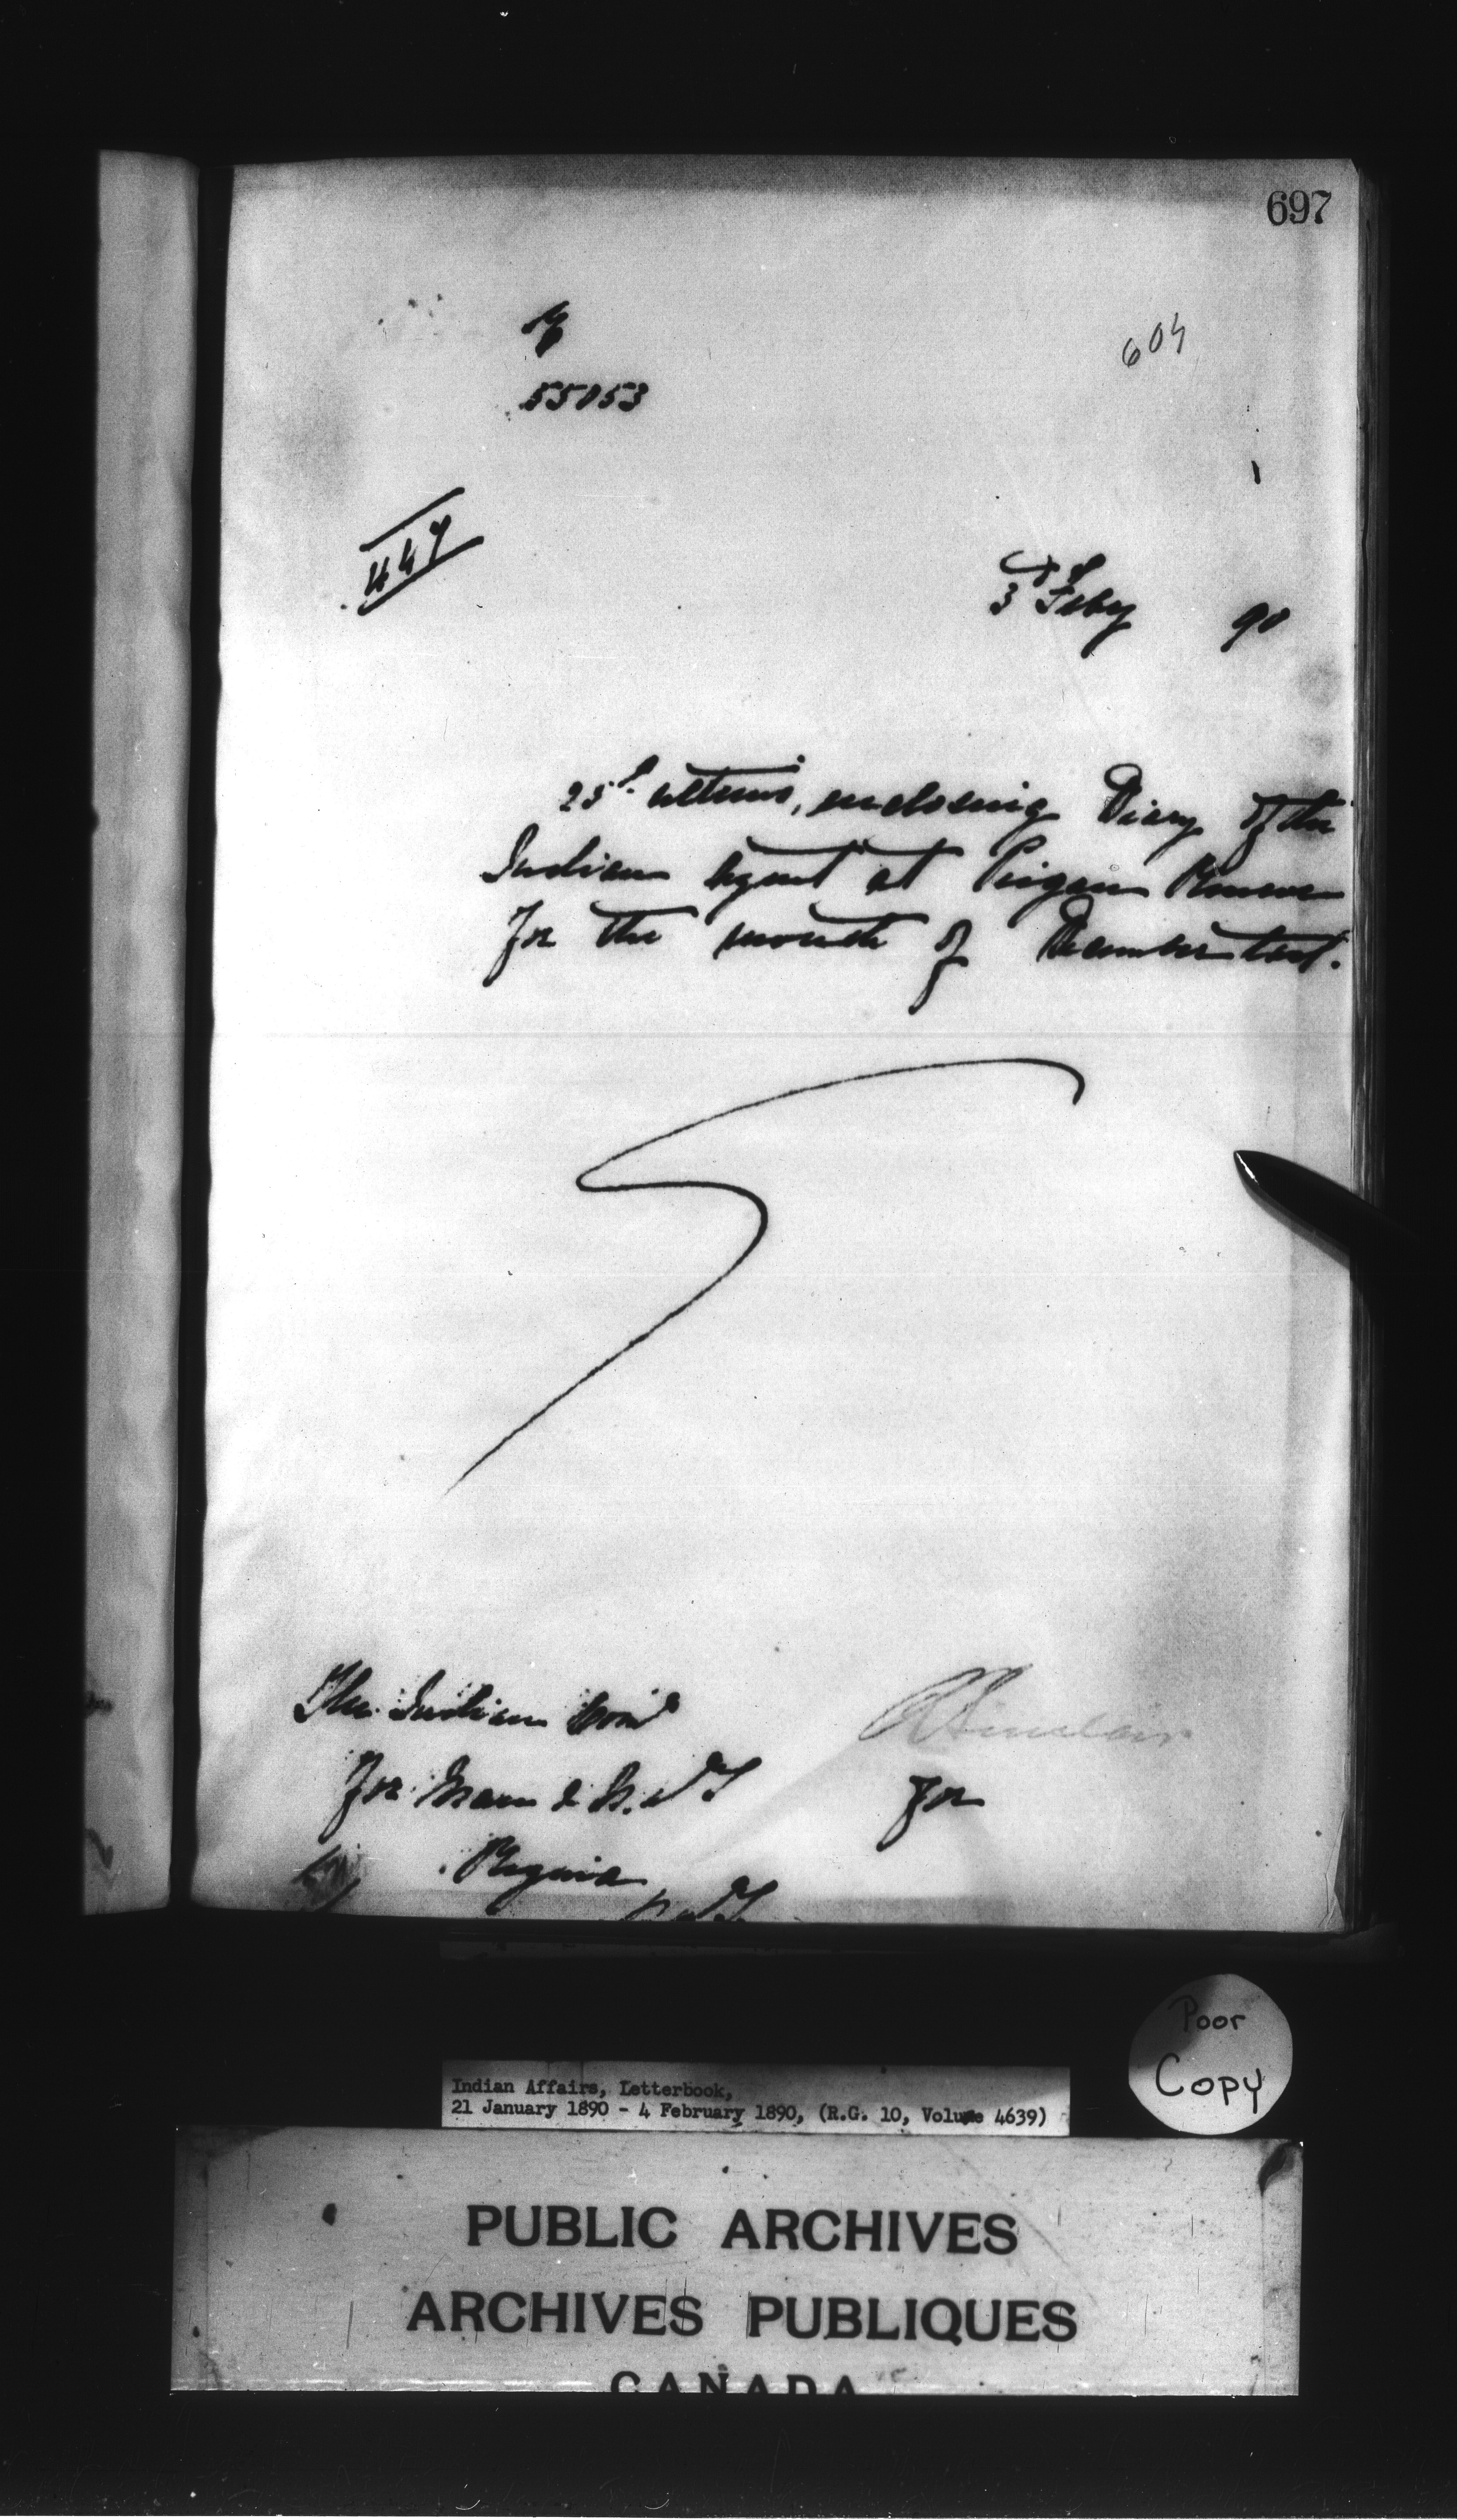 697
604
55053
447
3d Feby 90
25th ultimo, enclosing Diary of the
Indian Agent at Peigan Reserve
for the month of December last.
The Indian Comr
for Man & N.W.T
Regina
R Sinclair
for
Poor
Copy
Indian Affairs, Letterbook,
21 January 1890 - 4 February 1890, (R.G. 10, Volume 4639)
PUBLIC ARCHIVES
ARCHIVES PUBLIQUES
CANADA